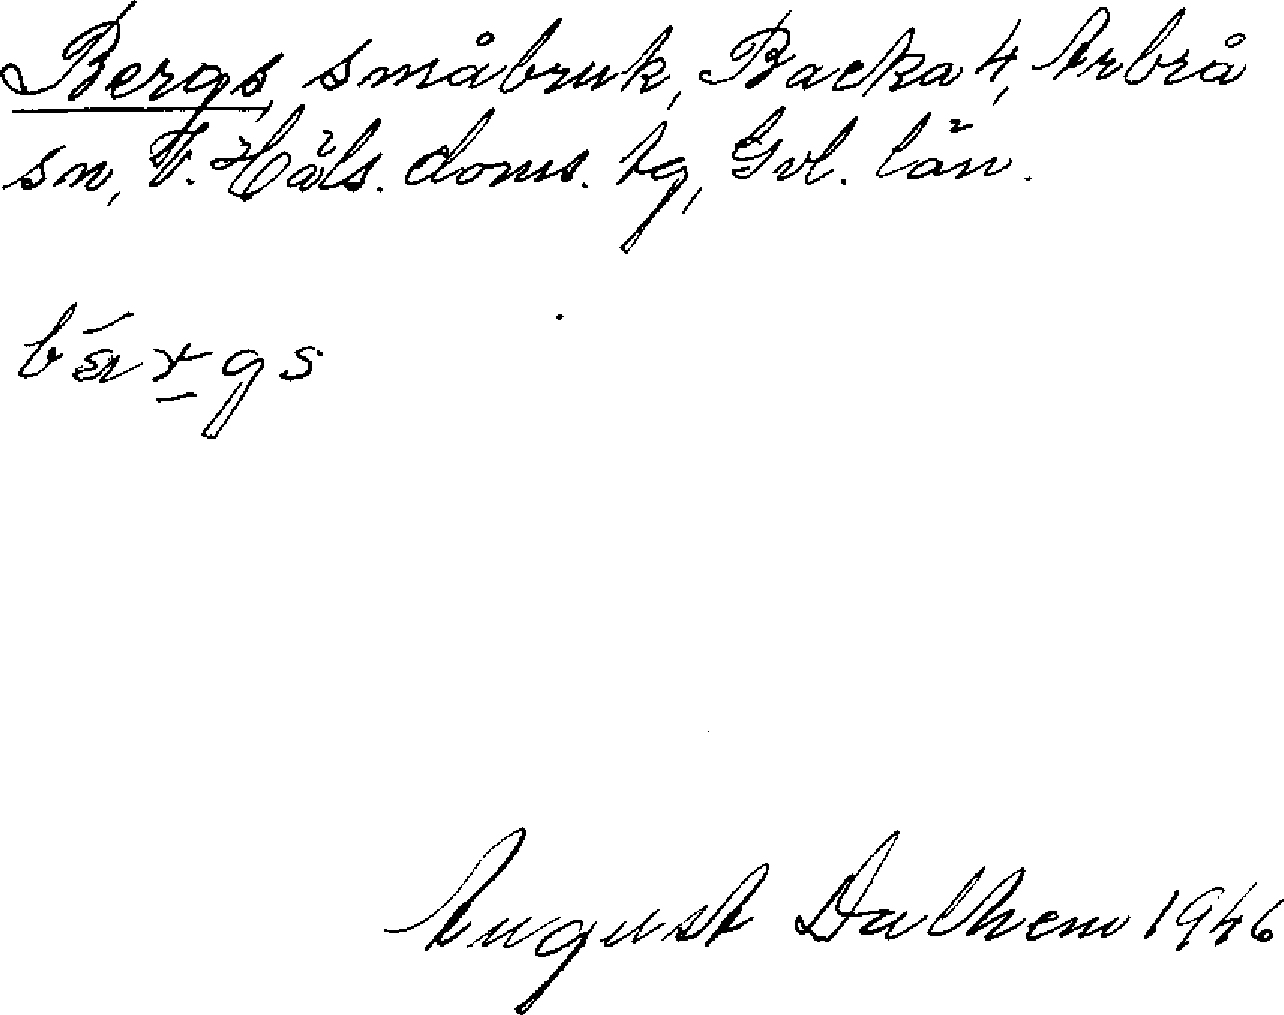 Bergs småbruk, Backa 4, Arbrå
sn, V. Häls. doms. tg, Gvl. län.
bä́r̲gs
August Dalhem 1946